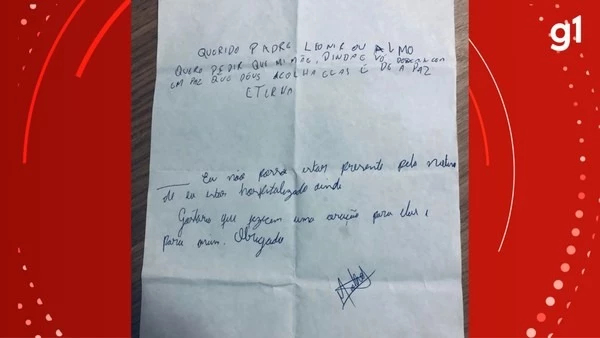 g1
QUERIDO PADRE LEOMIR OU ALMO
QUERO PEDIR QUE MI MÃE, DINDA E VÓ DESCANCEM
EM PAZ QUE DEUS ACOLHA ELAS E DE A PAZ
ETERNA
Eu não posso estar presente pelo motivo
de eu estar hospitalizado ainda
Gostaria que fizessem uma oração para elas e
para mim. Obrigado